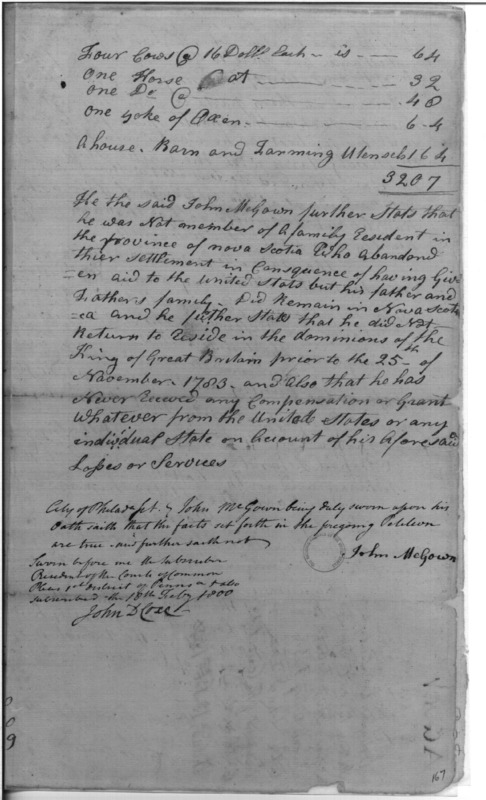 Four Cows @ 16 Dolls Each - is - 64
One Horse at 32
one Do @ 48
One yoke of Oxen 64
A house. Barn and Farming Utensels 164
3207
He the said John McGown further Stats that
he was Not member of A family Resident in
the province of nova Scotia Who Abandond
thier settlement in Consquence of having Giv
en aid to the united stats but his father and
Fiathers family - Did Remain in Nova Scoti
ea and he futher Stats that he did Not
Return to Reside in the dominions of the
King of Great Britain prior to the 25th of
November 1783 and Also that he has
Never Receved any Compensation or Grant
Whatever from the United States or any
individual State on Account of his Aforesaid
Losses or Services
City of Philadat. John McGown being duly sworn upon his
Oath saith that the facts set forth in the foregoing Petition
are true - and further saith not
Sworn before me the Subscriber
President of the Courts of Common
Pleas District of
Subscribed the 18th Feby 1800
John McGown
John D Coxe
167